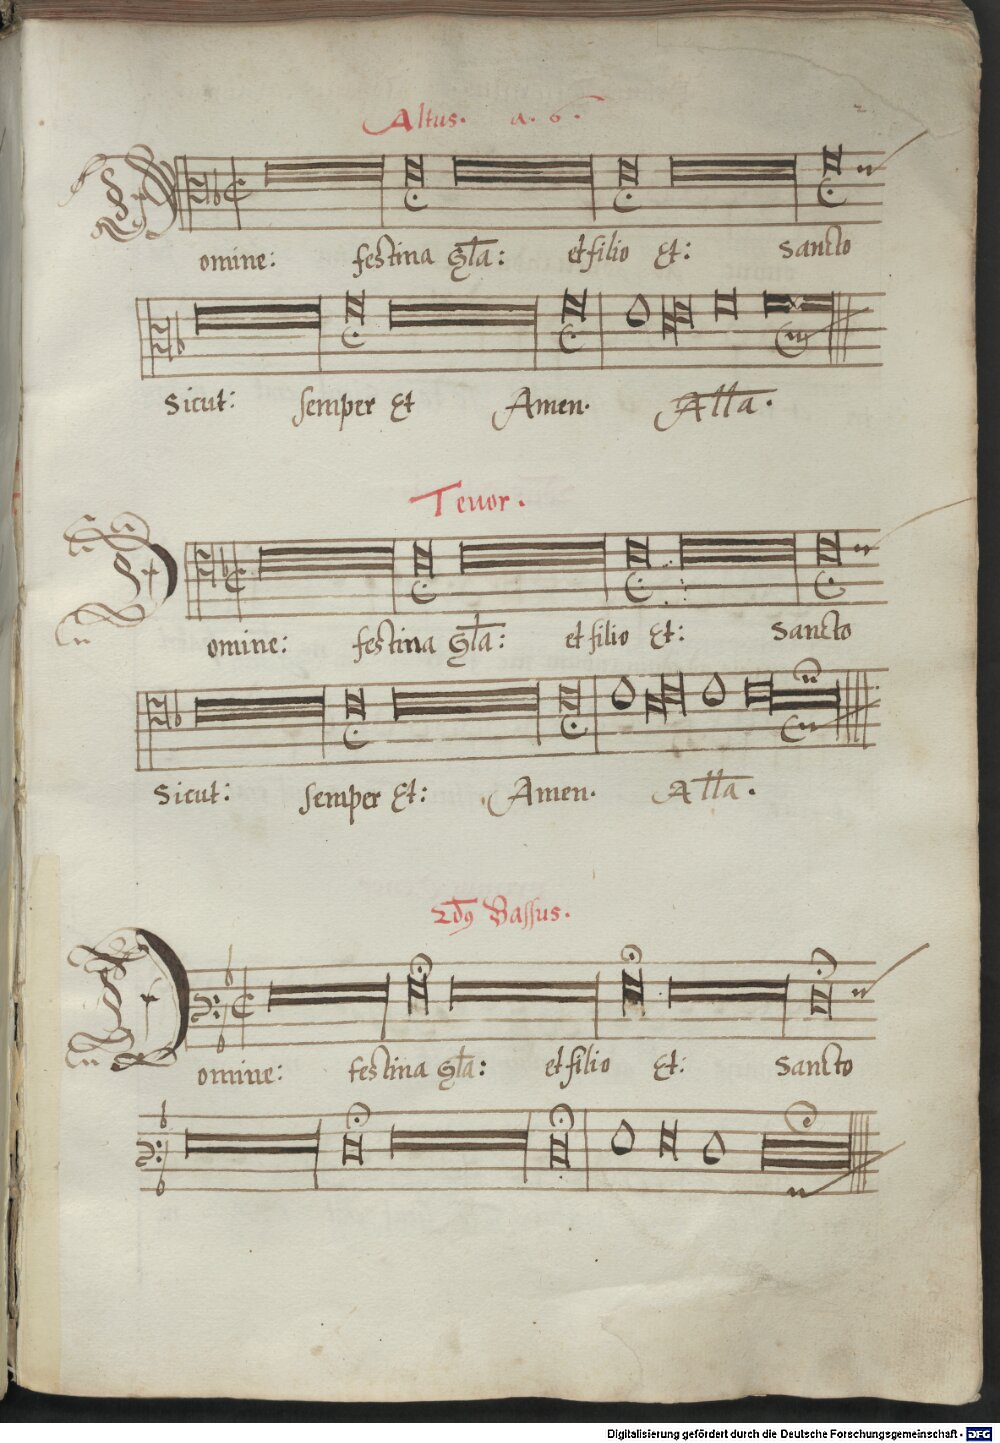 Altus. a. 6.
Domine: festina Gl̄a: et filio Et: Sancto
Sicut: semper Et Amen. All̄a.
Tenor.
Domine: festina Gl̄a: et filio Et: Sancto
Sicut: semper Et: Amen. All̄a.
2dꝰ Bassus.
Domine: festina Gl̄a: et filio Et: Sancto
Digitalisierung gefördert durch die Deutsche Forschungsgemeinschaft - DFG